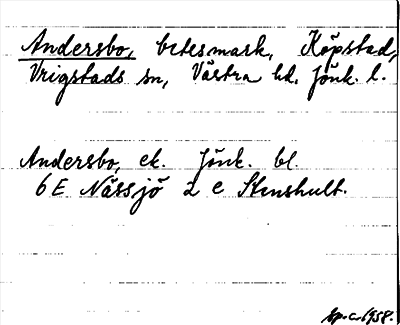 Andersbo, betesmark, Köpstad,
Vrigstads sn, Västra hd, Jönk. l.
Andersbo, ek. Jönk. bl.
6 E Nässjö 2 e Stenshult.
1958.